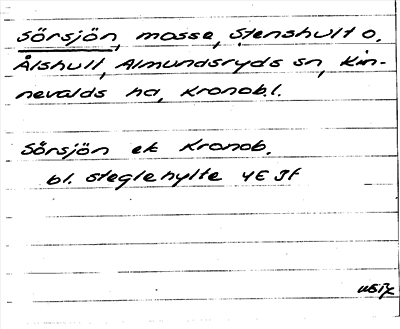 Sörsjön, mosse, Stenshult o.
Ålshult, Almundsryds sn, Kin-
nevalds hd, Kronob.l.
Sörsjön ek Kronob.
bl. Steglehylte 4E 3f